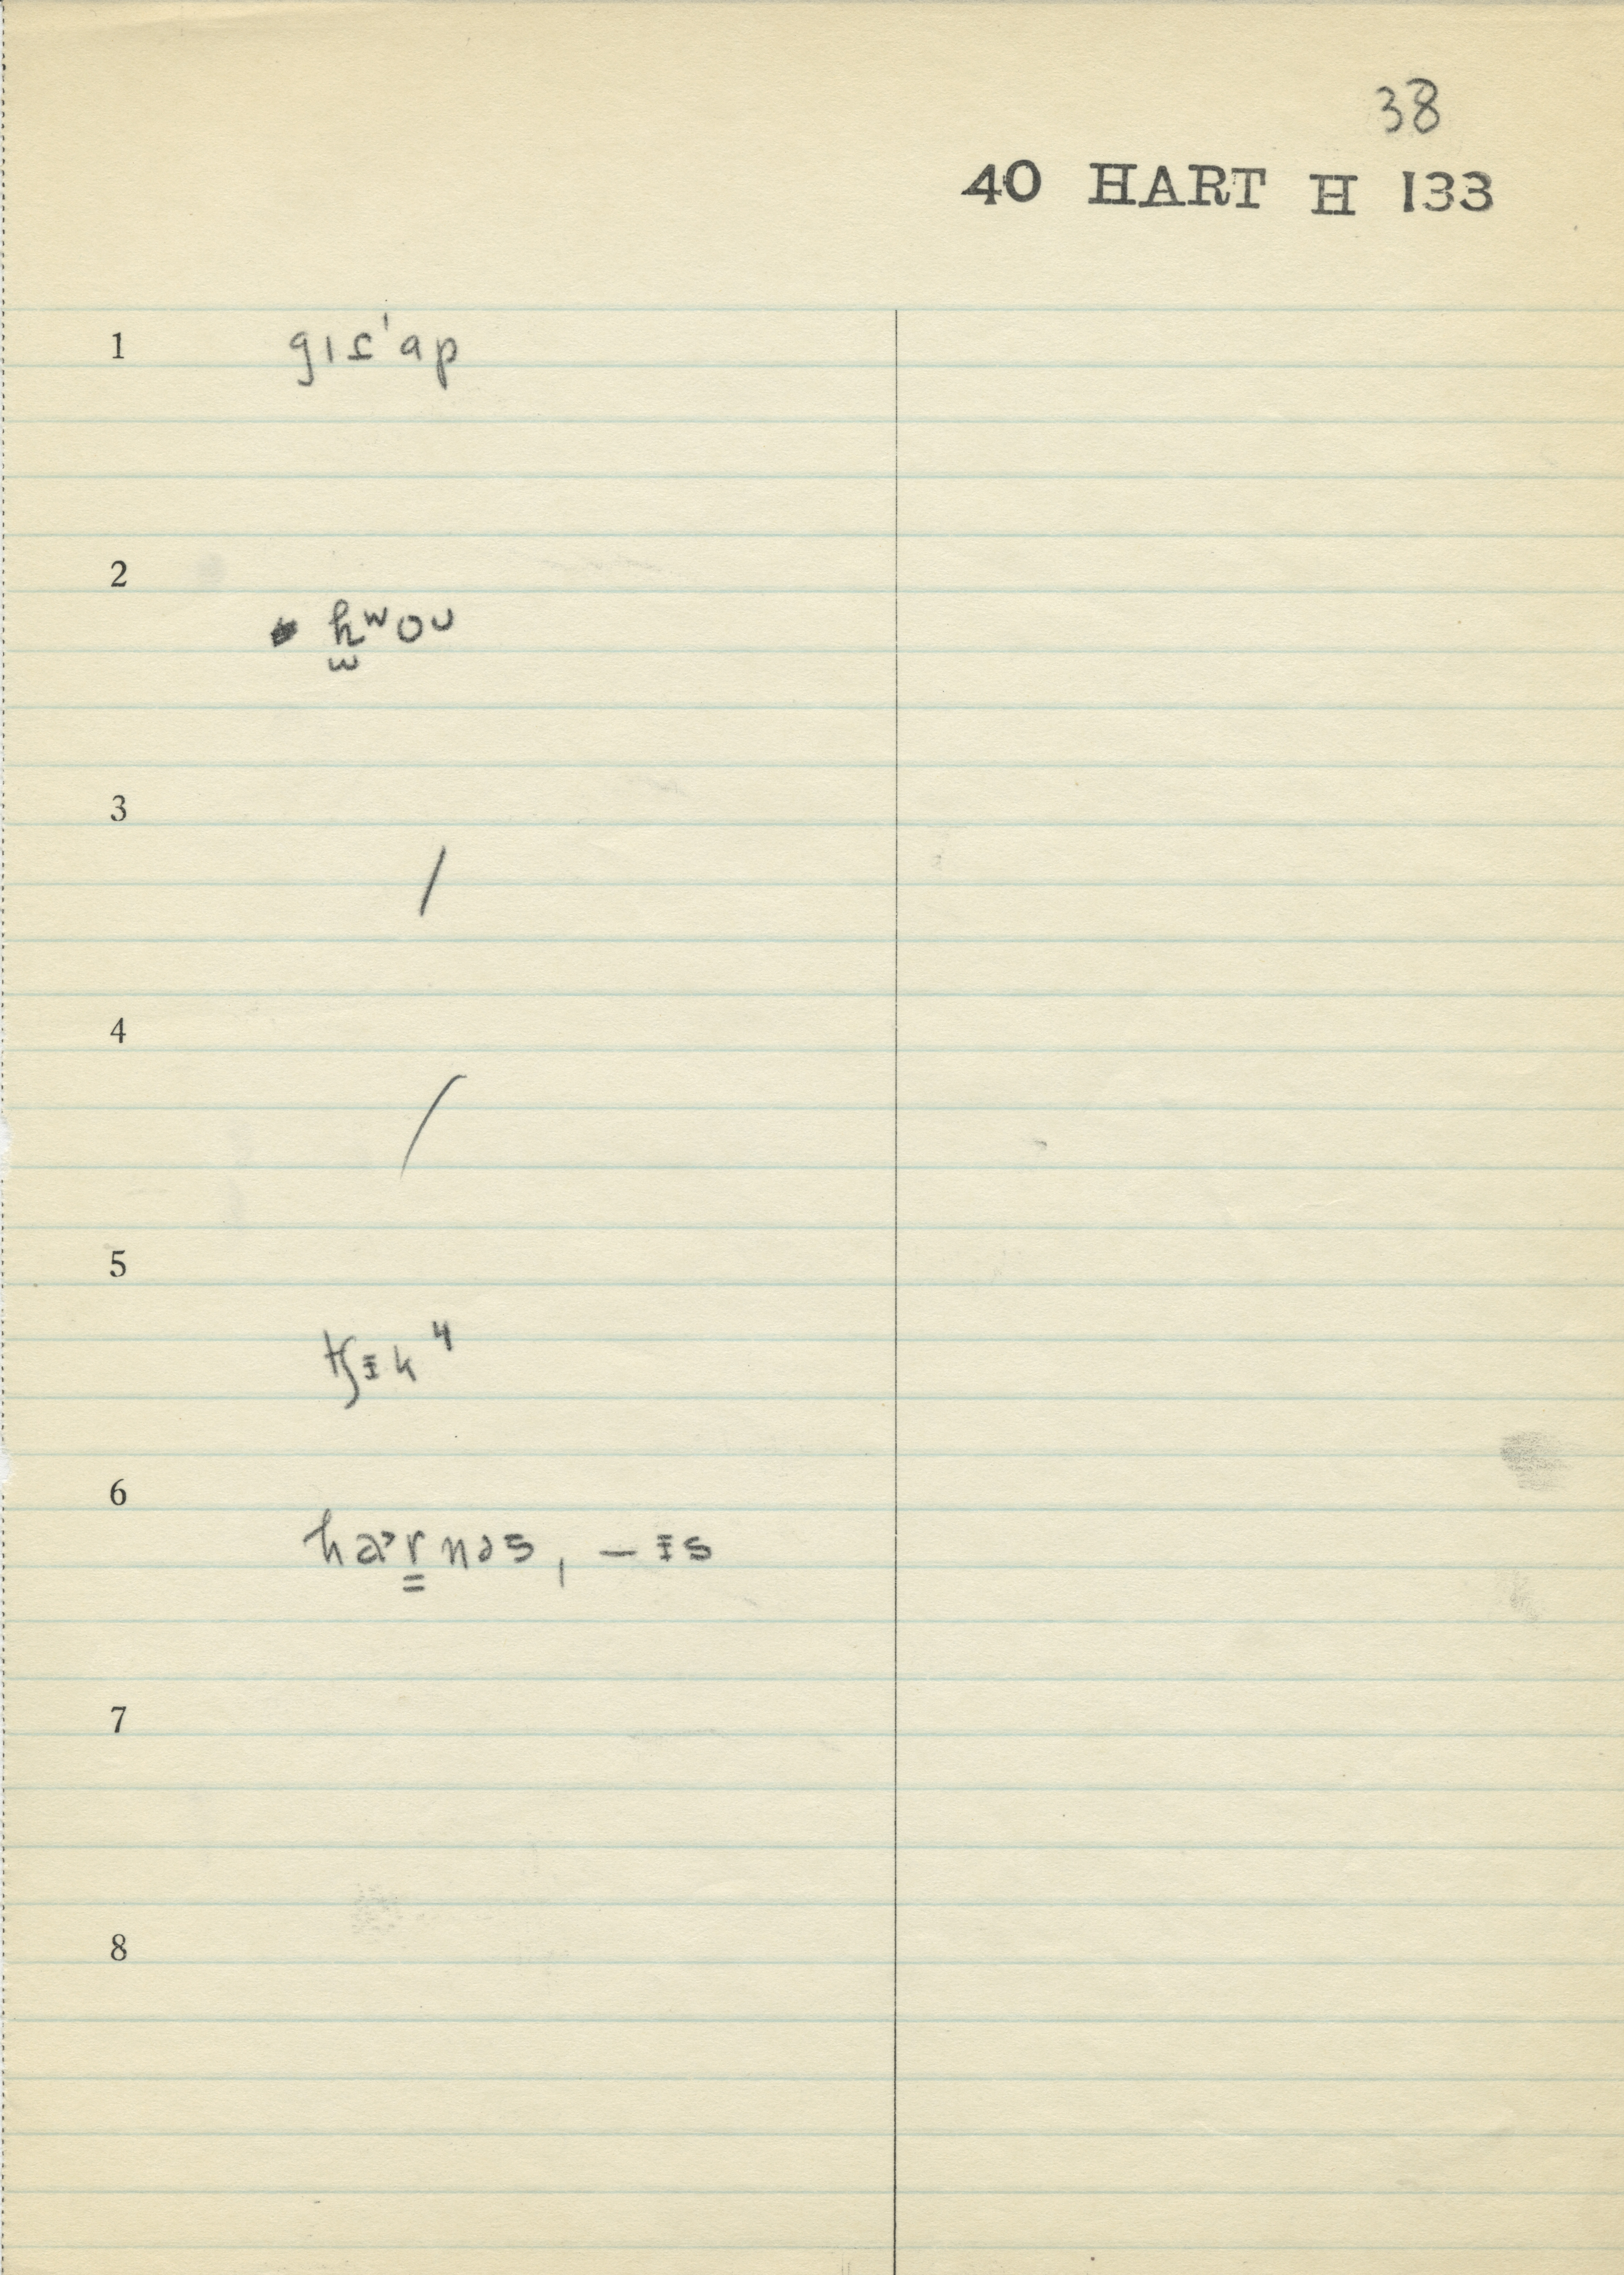 38
40 HART H 133
1 gɪɾˈap
2 h̫ʷoᴜ
3 /
4 /
5 tʃɪ̵k ɥ
6 haɚr̳nəs, – ɪ̵s
7
8